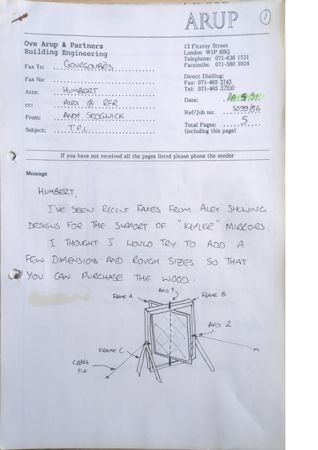 ARUP
1
Ove Arup & Partners
Building Engineering
13 Fitzroy Street
London W1P 6BQ
Telephone: 071-636 1531
Facsimile: 071-580 3924
Fax To:
Fax No:
Direct Dialling:
Fax: 071-465
Tel: 071-465
Attn: HUMBERT
Date:
cc: ALEX @ RFR
Ref/Job no:
From: ANDY SEDGWICK
Total Pages: 5
(including this page)
Subject:
If you have not received all the pages listed please phone the sender
Message
HUMBERT,
I'VE SEEN RECENT FAXES FROM ALEX SHOWING
DESIGNS FOR THE SUPPORT OF MIRRORS.
I THOUGHT I WOULD TRY TO ADD A
FEW DIMENSIONS AND ROUGH SIZES SO THAT
YOU CAN PURCHASE THE WOOD:
AXIS 1
FRAME A
FRAME B
AXIS 2
FRAME C
CABLE
TIE